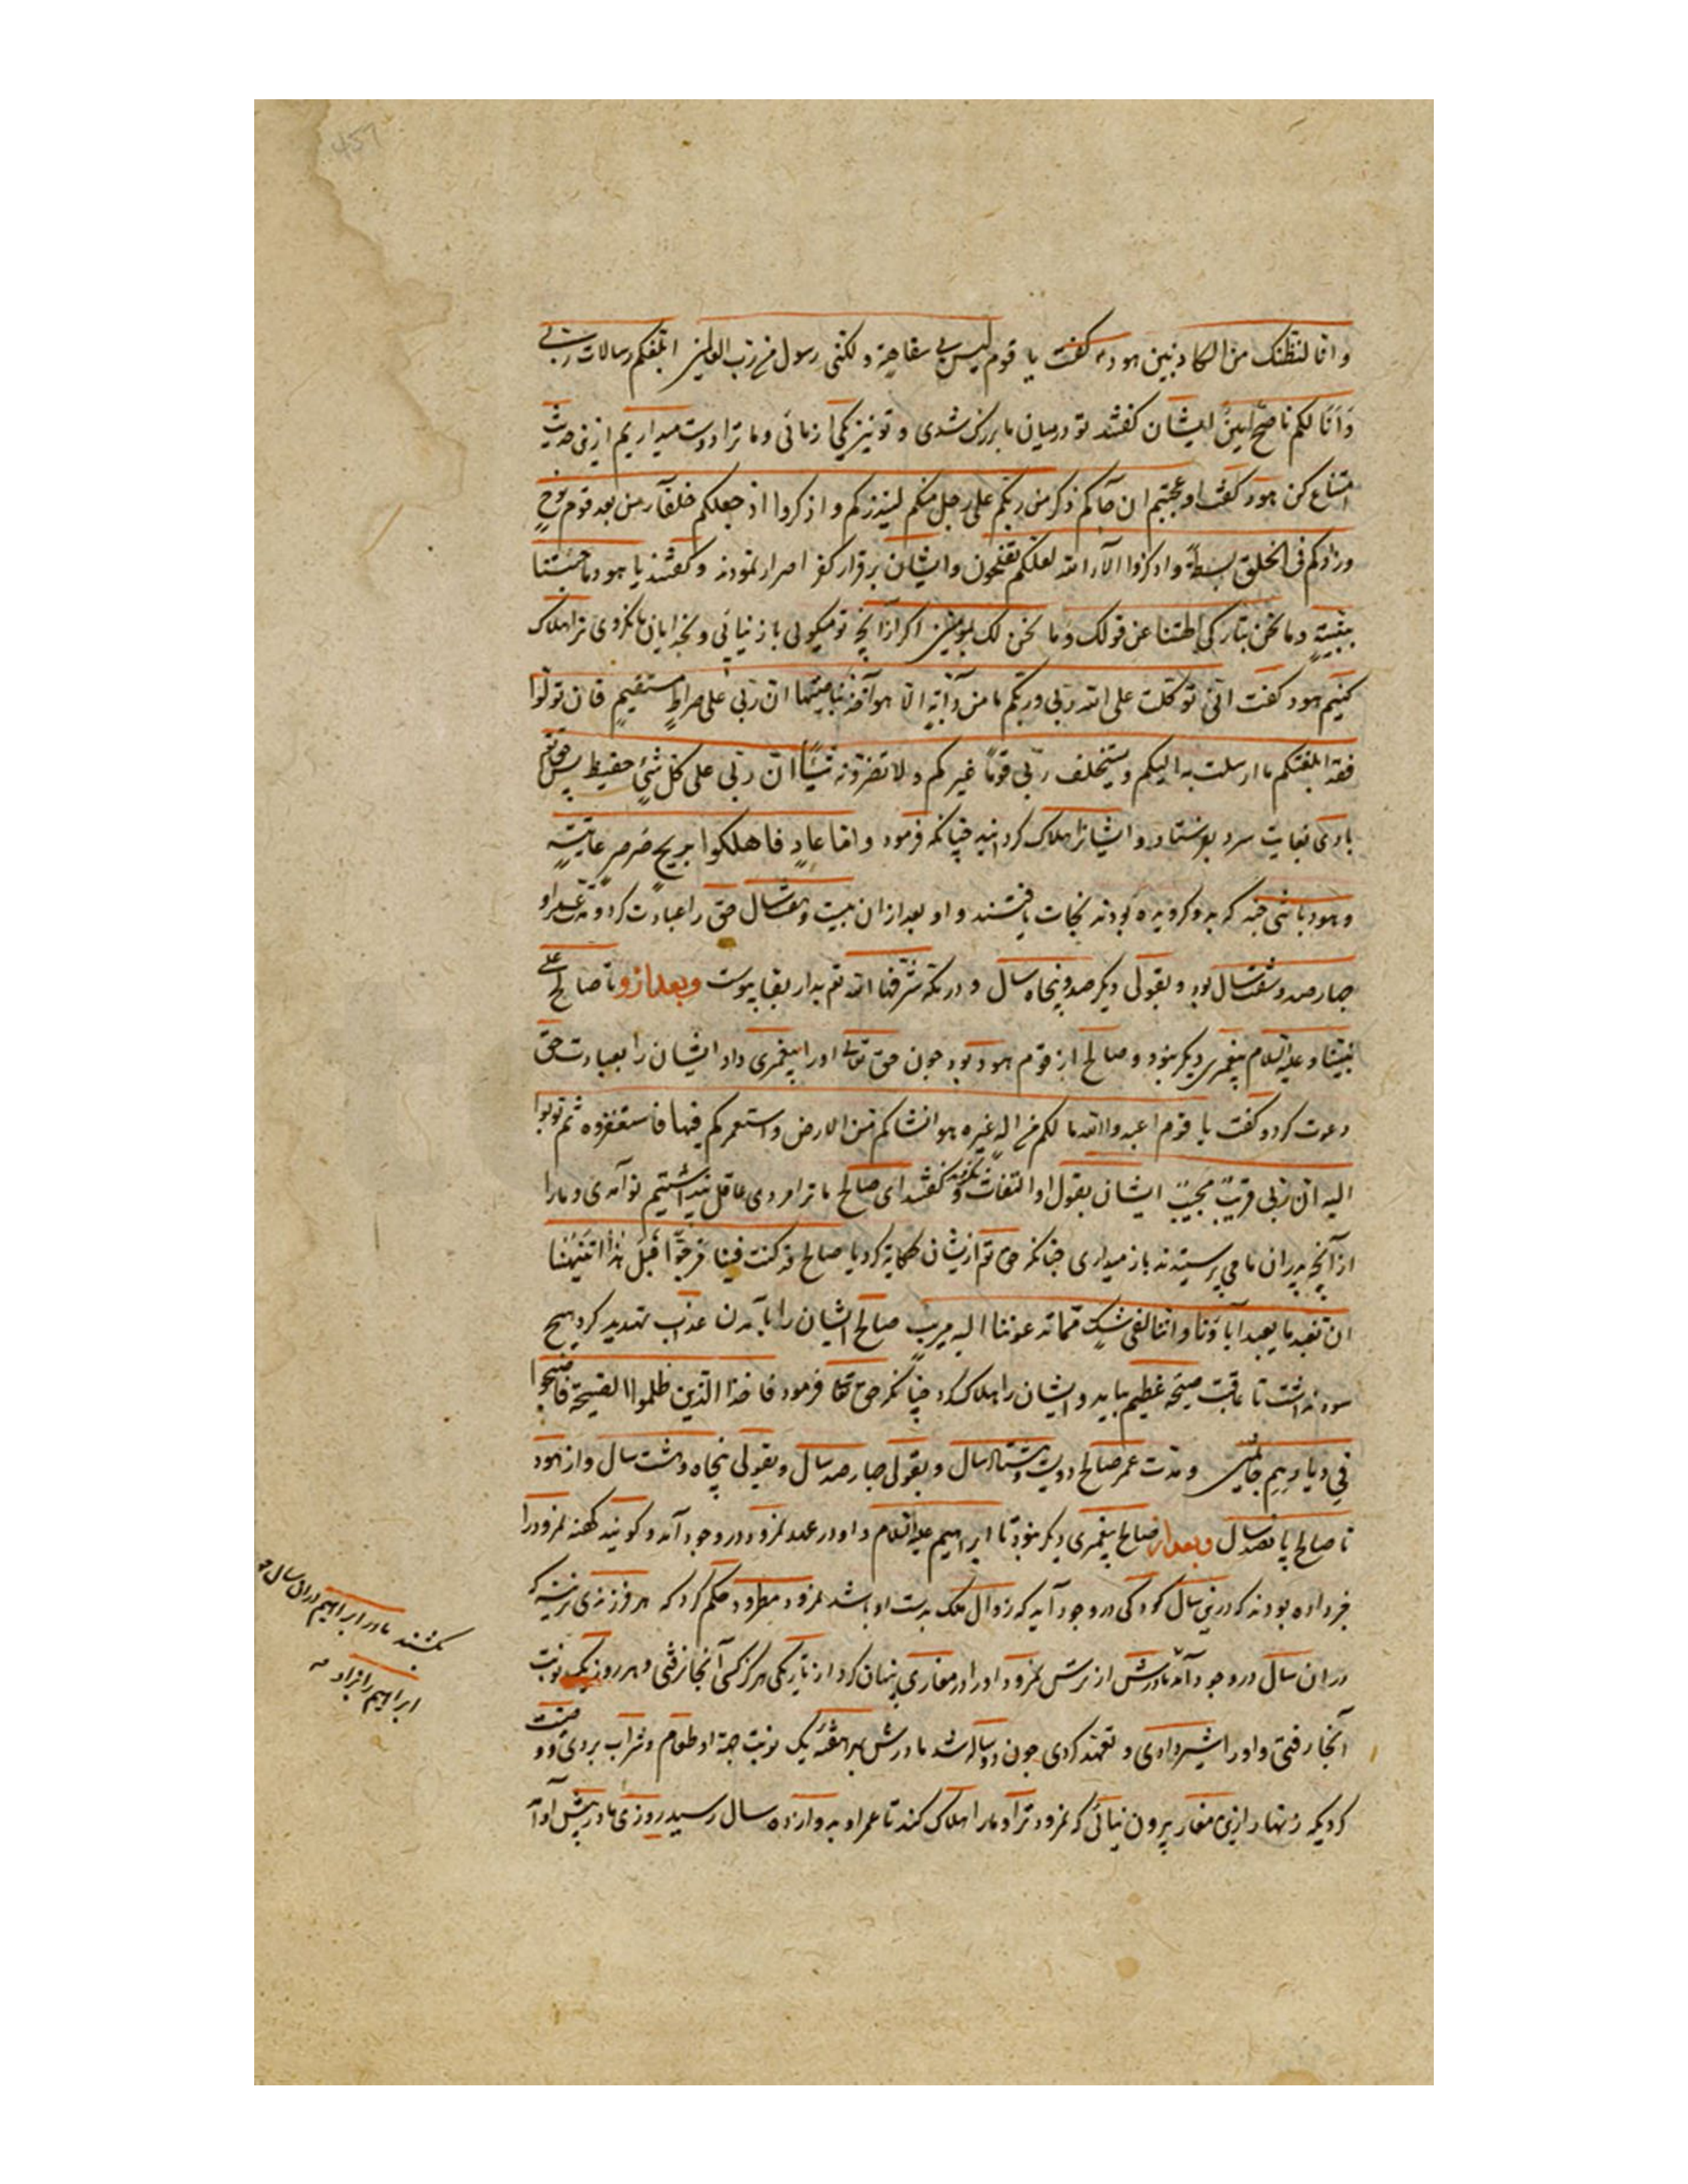 وانا لنظنک من الکاذبین هود گفت یا قوم لیس بی سفاهة ولکنی رسول من رب العالمین ابلغکم رسالات ربی
وَاَنَا لکم ناصحٌ امینٌ ایشان گفتند تو درمیان ما بزرک شدی و تو نیز یکی از مائی وما ترا دوست میداریم ازین حدیث
امتناع کن هود گفت اوعجبتم ان جآءکم ذکر من ربکم علی رجل منکم لینذرکم واذکروا اذ جعلکم خلفآء من بعد قوم نوحٍ
وزادکم فی الخلق بسطةً واذکروا الآء الله لعلکم تفلحون وایشان برقرار کفر اصرار نمودند وگفتند یا هود ما جئتنا
ببینةٍ وما نحن بتارکی الهتنا عن قولک وما نحن لک بمؤمنین اکر ازآنچه تو میکوئی باز نیائی وبخدایان ما نکروی ترا هلاک
کنیم هود گفت انی توکلت علی الله ربی وربکم ما من دآبةٍ الا هو آخذ بناصیتها ان ربی علی صراطٍ مستقیمٍ فان تولوا
فقد ابلغتکم ما ارسلت به الیکم ویستخلف ربی قومًا غیرکم ولا تضرونه شیئًا ان ربی علی کل شئٍ حفیظ پس حق تعم
بادی بغایت سرد بفرستاد و ایشانرا هلاک کردانید چنانکه فرمود واما عادٍ فاهلکوا بریحٍ صرصرٍ عاتیةٍ
وهود باشی جند که بدو کرویده بودند نجات یافتند و او بعد ازان بیست وهفت سال حق را عبادت کرد ومدت عمر او
جهارصد وشصت سال بود وبقولی دیکر صد وپنجاه سال ودر مکه شرفها الله تعم بدار بقا پیوست وبعد ازو تا صالح علی
نبینا وعلیه السلام پیغمبری دیکر نبود وصالح از قوم هود بود جون حق تعالی اورا پیغمبری داد ایشان را بعبادت حق
دعوت کرد وگفت یا قوم اعبدوا الله ما لکم من الهٍ غیره هو انشاکم من الارض واستعمرکم فیها فاستغفروه ثم توبوا
الیه ان ربی قریبٌ مجیبٌ ایشان بقول او التفات نکردند وگفتند ای صالح ما ترا مردی عاقل پنداشتیم تو آمدی ومارا
ازآنچه پدران ما می پرستیدند باز میداری جنانکه حق تعم ازیشان حکایة کرد یا صالح قد کنت فینا مرجوًّا قبل هذا اتنهٰنا
ان نعبد ما یعبد آباؤنا واننا لفی شکٍ مما تدعوننا الیه مریب صالح ایشان را بآمدن عذاب تهدید کرد هیچ
سود نداشت تا عاقبت صیحهٔ عظیم بیامد وایشان را هلاک کرد چنانکه حق تعالی فرمود فاخذ الذین ظلموا الصیحة فاصبحوا
فی دیارهم جاثمین ومدت عمر صالح دویست وهشتاد سال وبقولی جهارصد سال وبقولی پنجاه وهشت سال واز هود
تا صالح پانصد سال وبعد از صالح پیغمبری دیکر نبود تا ابراهیم علیه السلام واو در عهد نمرود در وجود آمد وگویند کهنه نمرود را
خبر داده بودند که درین سال کودکی در وجود آید که زوال ملک بدست او باشد نمرود مطرود حکم کرد که هر فرزندی نرینه که
دران سال در وجود آمد مادرش از ترس نمرود اورا در مغاری پنهان کرد از تاریکی هرکز کسی آنجا نرفتی وهر روز یک نوبت
آنجا رفتی واورا شیر دادی وتعهد کردی جون دوساله شد مادرش بهر هفته یک نوبت جهة او طعام وشراب بردی و وصیت
کردی که زنهار ازین مغار بیرون نیائی که نمرود ترا ومارا هلاک کند تا عمر او بدوازده سال رسید روزی مادر پیش او آمد
بکشند مادر ابراهیم دران سال
ابراهیم را بزاد